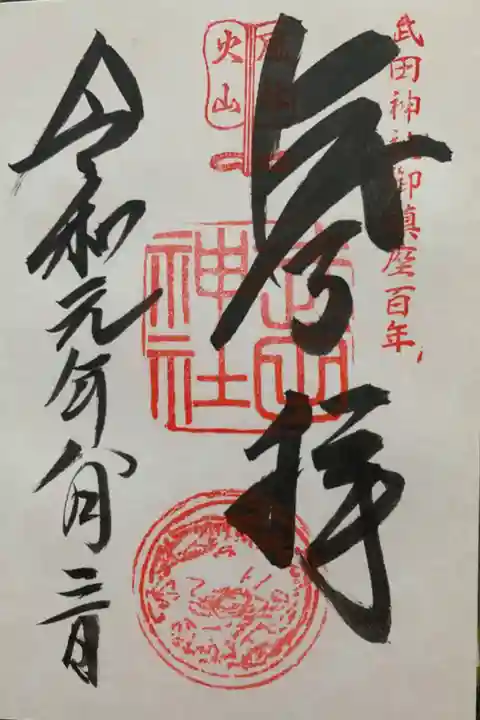 武田神社御鎮座百年
奉拝
風林
火山
武田
神社
令和元年八月三日